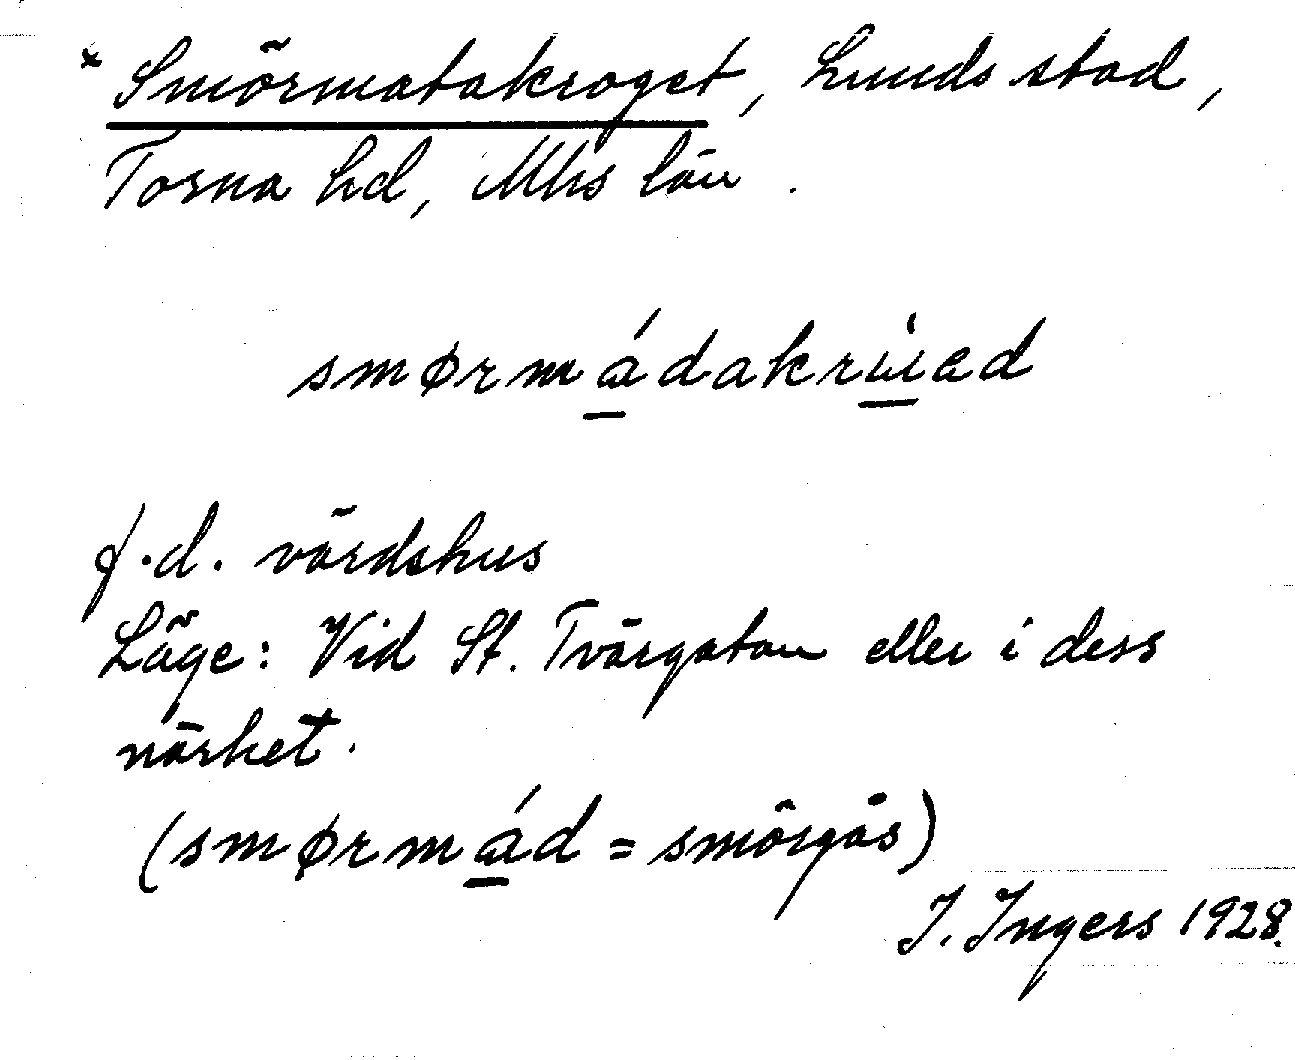 * Smörmatakroget, Lunds stad,
Torna hd, Mhs län.
smørmádakrùəd
f.d. värdshus
Läge: Vid St. Tvärgatan eller i dess
närhet.
(smørmád = smörgås)
I. Ingers 1928.